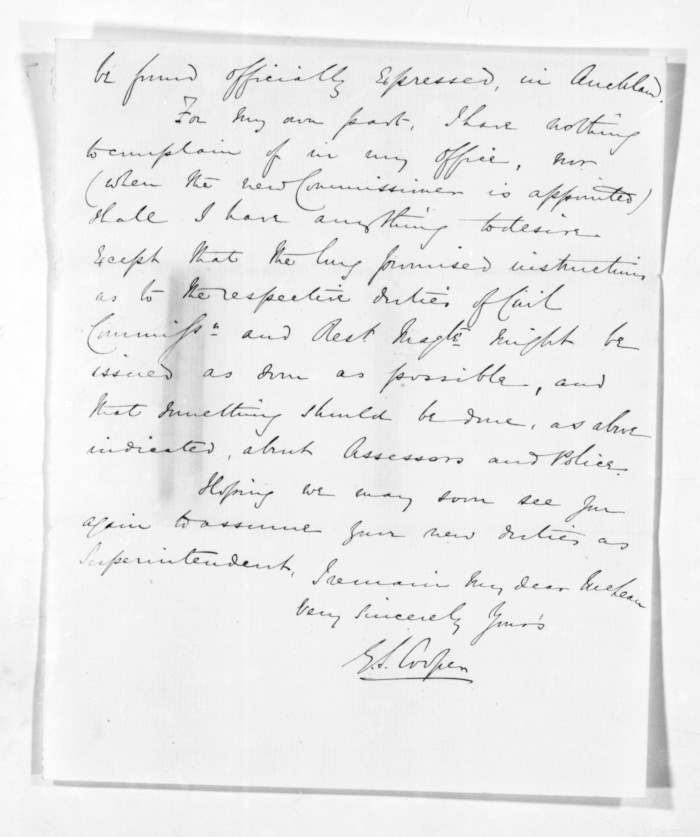 be found officially expressed, in Auckland.
For my own part, I have nothing
to complain of in my office, nor
(when the new Commissioner is appointed)
shall I have anything to desire
except that the long promised instructions
as to the respective duties of Civil
Commissrs and Rest Magtes might be
issued as soon as possible, and
that something should be done, as above
indicated, about Assessors and Police.
Hoping we may soon see you
again to assume your new duties as
Superintendent, I remain My dear McLean
Very Sincerely Yours
G.S. Cooper